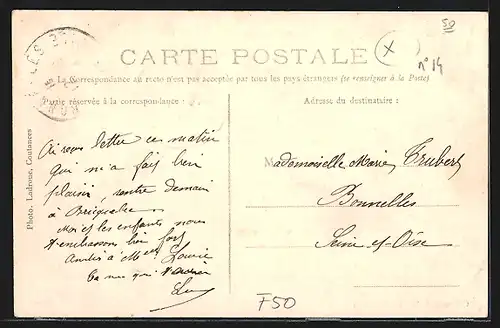 50
CARTE POSTALE
X
n° 14
La Correspondance au recto n'est pas acceptée par tous les pays étrangers (se renseigner à la Poste)
Partie réservée à la correspondance :
Adresse du destinataire :
Photo. Ladroue, Coutances
Ai reçu lettre ce matin
qui m'a fait bien
plaisir, rentre demain
à Bricquebec
Moi et les enfants nous
t'embrassons bien fort
Amitiés à Melle Louise
Ta mère qui
Mademoiselle Marie Trubert
Bonnelles
Seine-et-Oise
F50